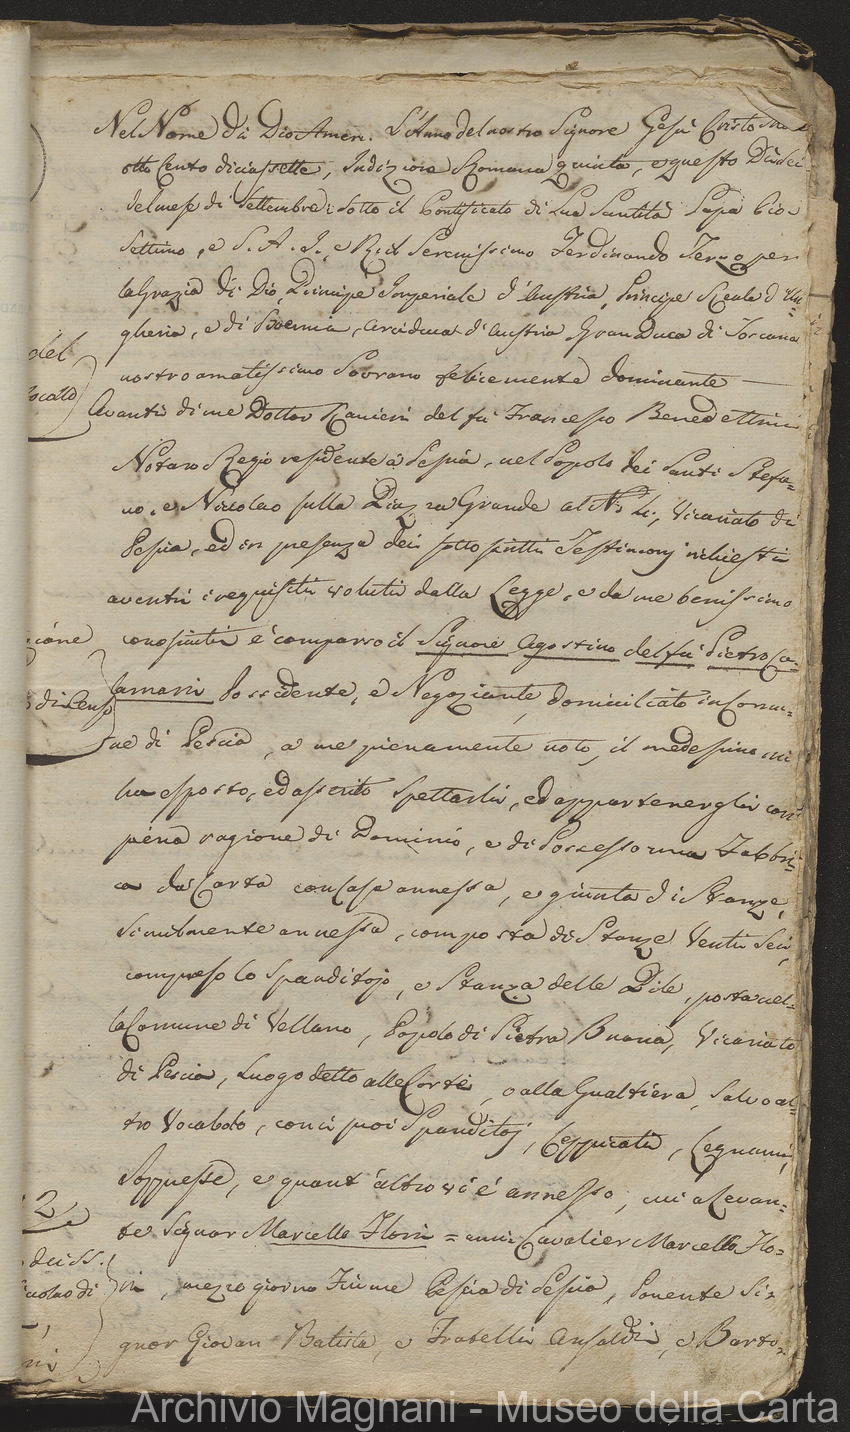 Nel Nome di Dio Amen. L'Anno del nostro Signore Gesù Cristo Mil
otto Cento diciassette, Indizione Romana quinta, e questo Dì sei
del mese di Settembre; sotto il Pontificato di Sua Santità Papa Pio
Settimo, e S. A. I., e R. il Serenissimo Ferdinando Terzo per
la Grazia di Dio, Principe Imperiale d'Austria, Principe Reale d'Un=
gheria, e di Boemia, Arciduca d'Austria Gran Duca di Toscana
nostro amatissimo Sovrano felicemente dominante
Avanti di me Dottor Ranieri del fu Francesco Benedettini
Notaro Regio residente a Pescia, nel Popolo dei Santi Stefa=
no, e Niccolao sulla Piazza Grande al N°
, Vicariato di
Pescia, ed in presenza dei sottoscritti Testimonj richiesti
aventi i requisiti voluti dalla Legge, e da me benissimo
conosciuti è comparso il Signore Agostino del fu Pietro Ca=
lamari Possidente, e Negoziante, domiciliato in Comu=
ne di Pescia, a me pienamente noto, il medesimo mi
ha esposto, ed asserito spettarli, ed appartenergli con
piena ragione di Dominio, e di Possesso una Fabbri=
ca da Carta con Casa annessa, e giunta di Stanze,
similmente annessa, composta di Stanze Venti Sei,
compreso lo Spanditojo, e Stanza delle Pile, posta nel=
la Comune di Vellano, Popolo di Pietra Buona, Vicariato
di Pescia, Luogo detto alle Corti, o alla Gualtiera, salvo al=
tro Vocabolo, con i suoi Spanditoj, Legnami,
Soppresse, e quant'altro vi è annesso, cui a Levan=
te Signor Marcello Flori = anzi Cavalier Marcello Flo=
ri, mezzo giorno Fiume Pescia di Pescia, Ponente Si=
gnor Giovan Batista, e Fratelli Ansaldi, e Barto=
del
zione
di Cens
2
dei SS.
colao di
Archivio Magnani - Museo della Carta